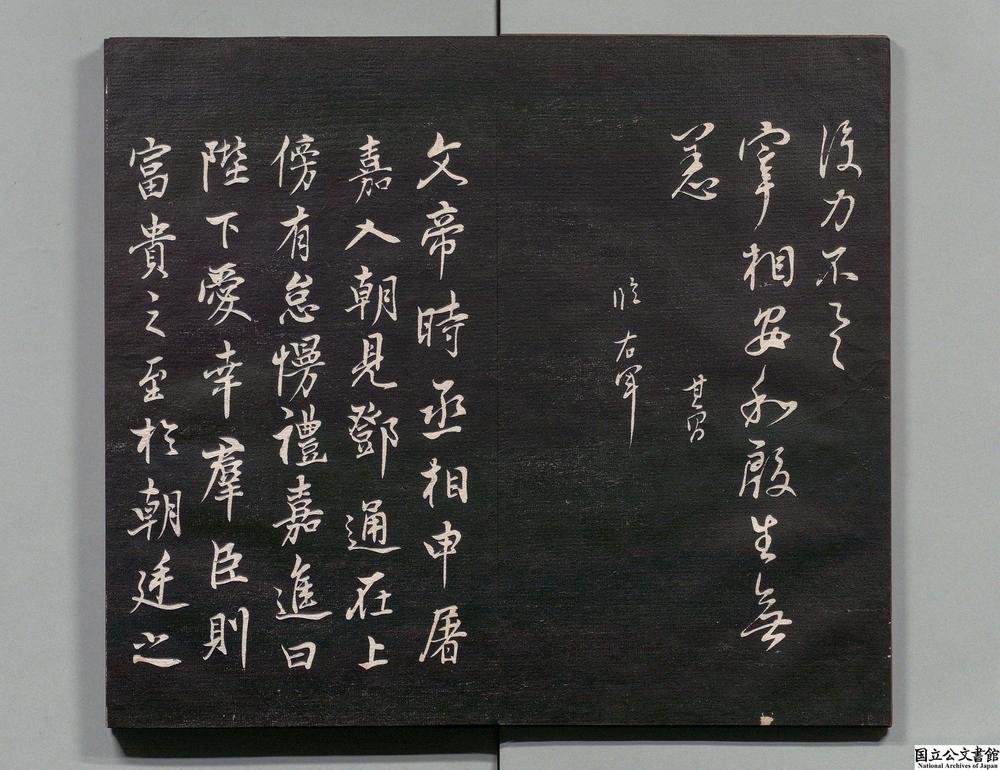 復力不次
宰相安和殷生無
恙
其昌
臨右軍
文帝時丞相申屠
嘉入朝見鄧通在上
傍有怠慢禮嘉進曰
陛下愛幸羣臣則
富貴之至於朝廷之
国立公文書館
National Archives of Japan